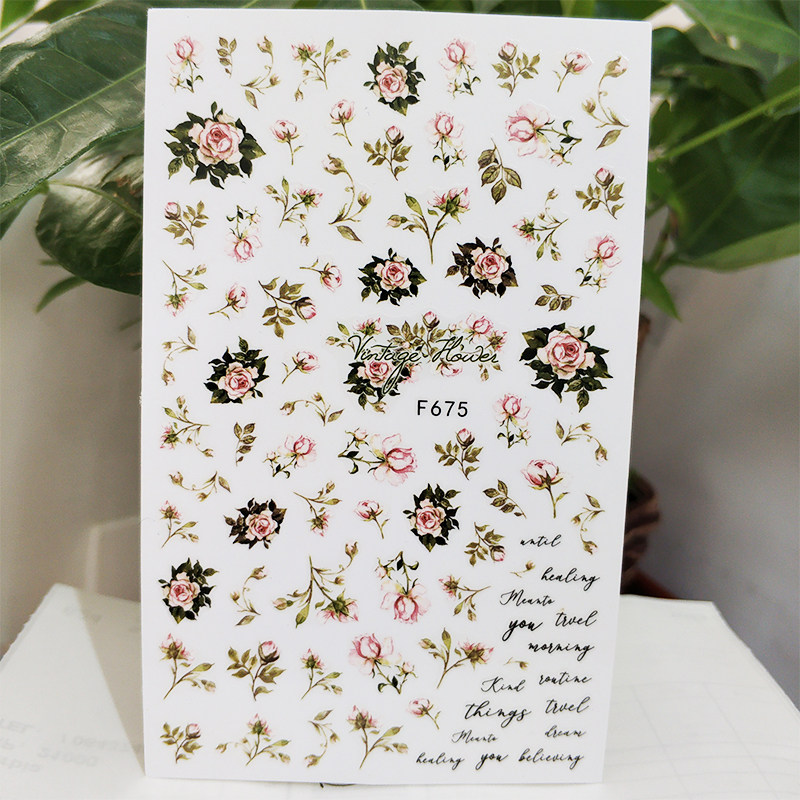 Vintage Flower
F675
until
healing
Meanto
you trvel
morning
Kind routine
things trvel
Meanto dream
healing you believing